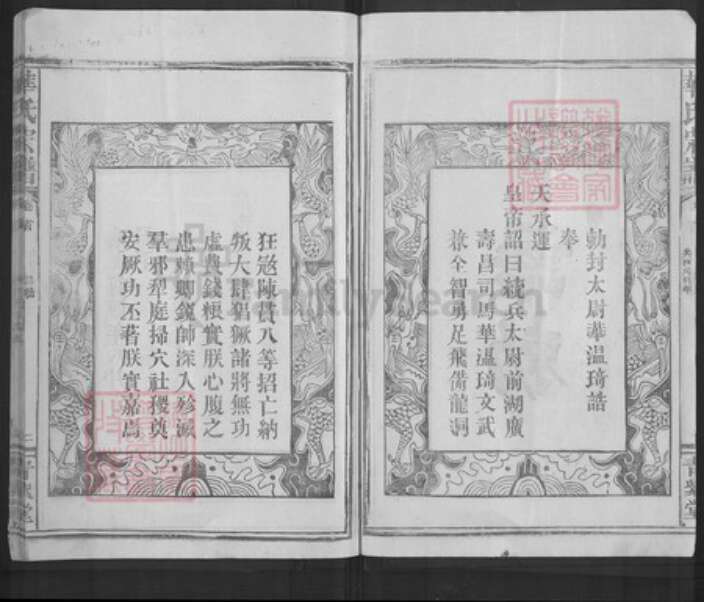 勅封太尉華温琦誥
奉
天承運
皇帝詔曰統兵太尉前湖廣
壽昌司馬華温琦文武
兼全智勇足飛
龍洞
狂寇陳貴八等招亡納
叛大肆猖獗諸將無功
虛費錢粮實朕心腹之
患賴卿銳師深入殄滅
羣邪犁庭掃穴社稷奠
安厥功丕著朕實嘉焉
華氏宗譜